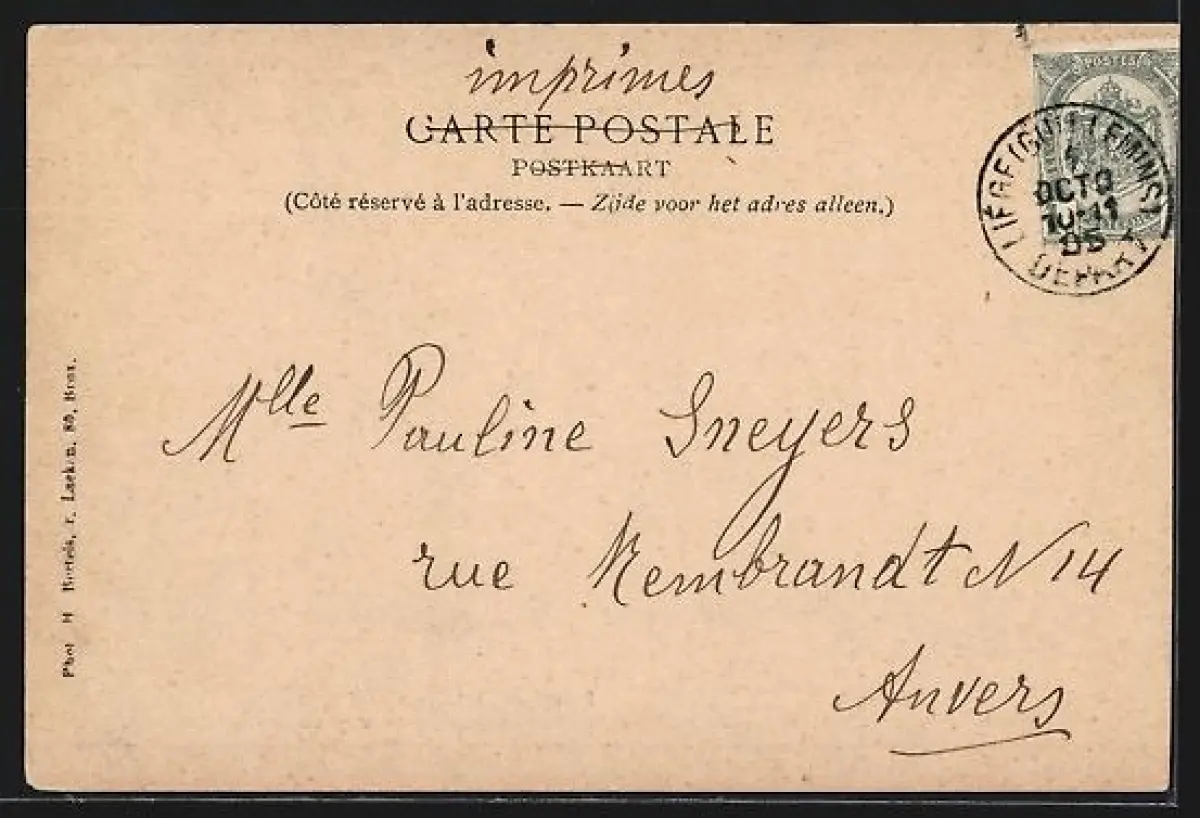 imprimes
CARTE POSTALE
POSTKAART
(Côté réservé à l'adresse. — Zijde voor het adres alleen.)
POSTES
LIÉGE (GUILLEMINS)
OCTO
10-11
05
DEPART
Mlle Pauline Sneyers
rue Rembrandt N 14
Anvers
Phot H r. Laeken, 80, Brux.